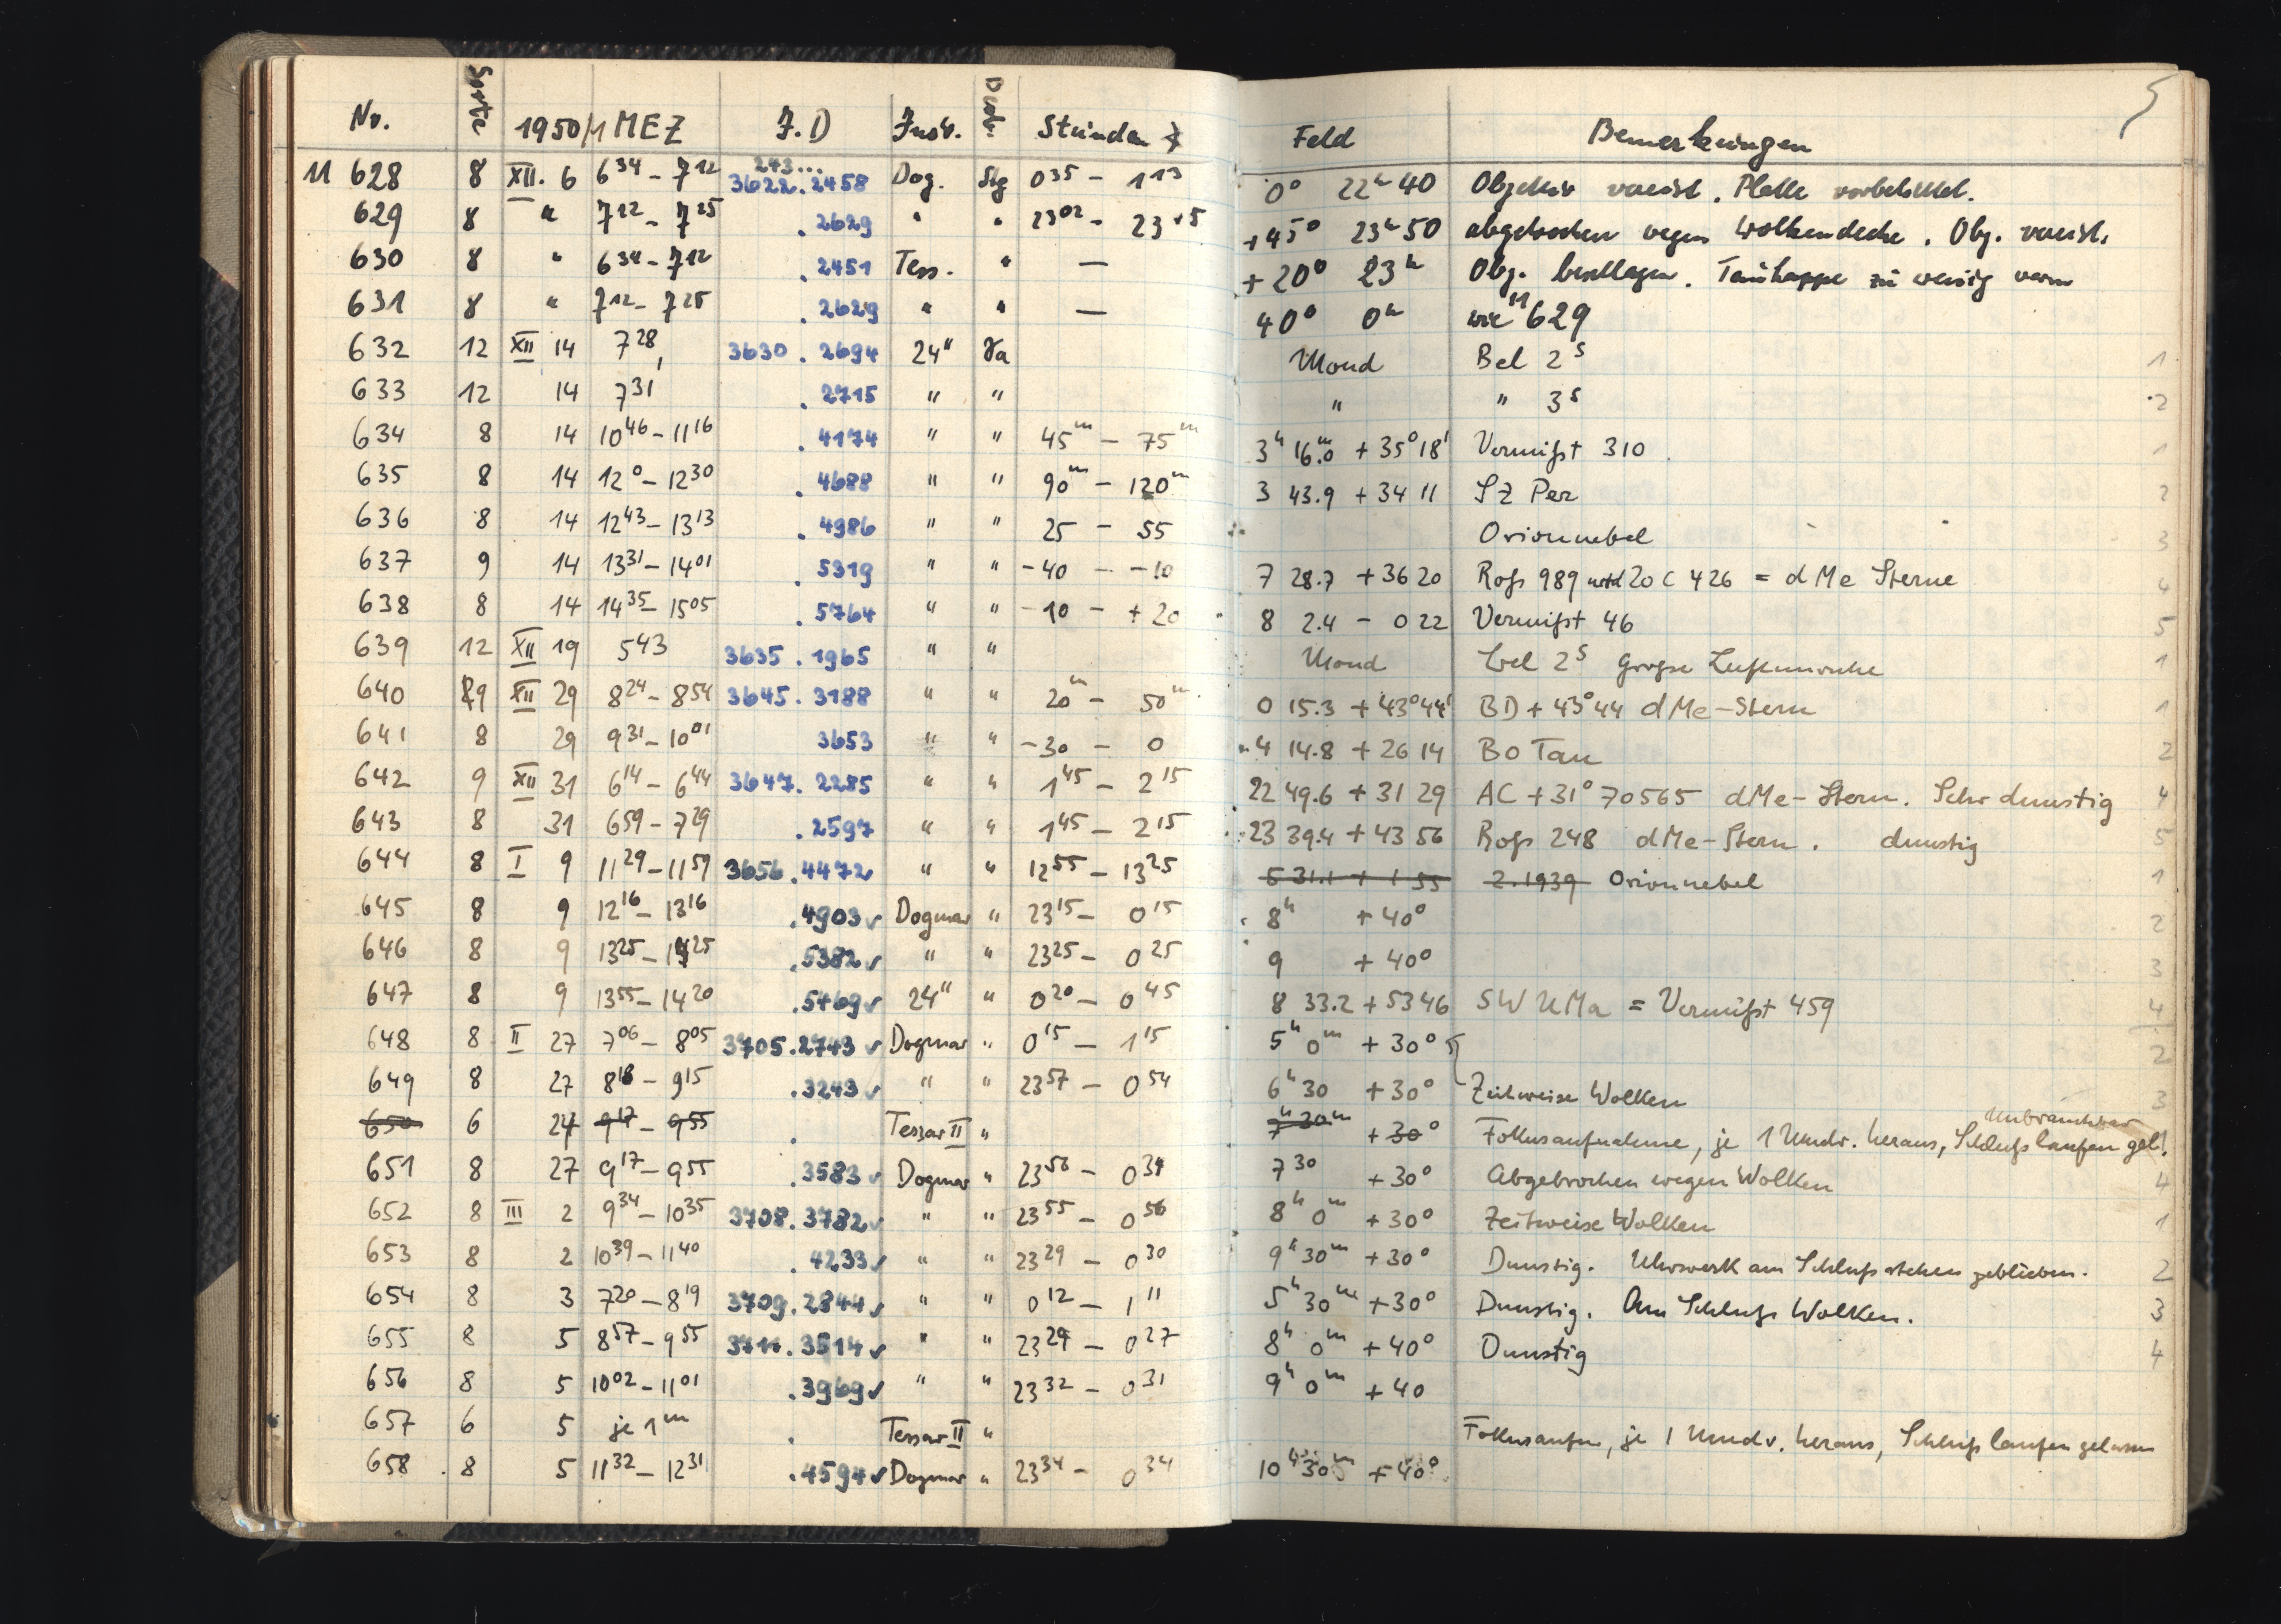 5
Nr. Sorte 1950/1 MEZ J.D Instr. Stunden Feld Bemerkungen
243...
11 628 8 XII. 6 6 34 – 7 12 3622.2458 Dog. Stg 0 35 – 1 13 0° 22h 40 Objektiv vereist. Platte
629 8 " 7 12 – 7 25 .2629 " " 23 02 – 23 15 +45° 23h 50 abgebrochen wegen Wolkendecke. Obj. vereist.
630 8 " 6 34 – 7 12 .2451 Tess. " — +20° 23h Obj. beschlagen. Taukappe zu wenig warm
631 8 " 7 12 – 7 25 .2629 " " — 40° 0h wie 11 629
632 12 XII 14 7 28 3630.2694 24" Ta Mond Bel 2s 1
633 12 14 7 31 .2715 " " " " 3s 2
634 8 14 10 46 – 11 16 .4174 " " 45m – 75m 3h 16.0m + 35° 18' Vermißt 310 1
635 8 14 12 0 – 12 30 .4688 " " 90m – 120m 3 43.9 + 34 11 SZ Per 2
636 8 14 12 43 – 13 13 .4986 " " 25 – 55 Orionnebel 3
637 9 14 13 31 – 14 01 .5319 " " -40 – -10 7 28.7 + 36 20 Roß 989 und 20 C 426 = dMe Sterne 4
638 8 14 14 35 – 15 05 .5764 " " -10 – +20 8 2.4 – 0 22 Vermißt 46 5
639 12 XII 19 5 43 3635.1965 " " Mond bel 2s große Luftunruhe 1
640 9 XII 29 8 24 – 8 54 3645.3188 " " 20m – 50m 0 15.3 + 43° 44' BD + 43° 44 dMe-Stern 1
641 8 29 9 31 – 10 01 3653 " " -30 – 0 4 14.8 + 26 14 BO Tau 2
642 9 XII 31 6 14 – 6 44 3647.2285 " " 1 45 – 2 15 22 49.6 + 31 29 AC + 31° 70565 dMe-Stern. Sehr dunstig 4
643 8 31 6 59 – 7 29 .2597 " " 1 45 – 2 15 23 39.4 + 43 56 Roß 248 dMe-Stern. dunstig 5
644 8 I 9 11 29 – 11 59 3656.4472 " " 12 55 – 13 25 5 31.1 + 1 55 2.1939 Orionnebel 1
645 8 9 12 16 – 13 16 .4903 ✓ Dogmar " 23 15 – 0 15 8h + 40° 2
646 8 9 13 25 – 14 25 .5382 ✓ " " 23 25 – 0 25 9 + 40° 3
647 8 9 13 55 – 14 20 .5469 ✓ 24" " 0 20 – 0 45 8 33.2 + 53 46 SW UMa = Vermißt 459 4
648 8 II 27 7 06 – 8 05 3705.2743 ✓ Dogmar " 0 15 – 1 15 5h 0m + 30° 2
649 8 27 8 18 – 9 15 .3243 ✓ " " 23 57 – 0 54 6h 30 + 30° Zeitweise Wolken 3
Unbrauchbar
650 6 27 9 17 – 9 55 . Tessar II " 7h 30m + 30° Fokusaufnahme, je 1 Umdr. heraus, Schluß laufen gel.
651 8 27 9 17 – 9 55 .3583 ✓ Dogmar " 23 56 – 0 34 7 30 + 30° Abgebrochen wegen Wolken 4
652 8 III 2 9 34 – 10 35 3708.3782 ✓ " " 23 55 – 0 56 8h 0m + 30° Zeitweise Wolken 1
653 8 2 10 39 – 11 40 .4233 ✓ " " 23 29 – 0 30 9h 30m + 30° Dunstig. Uhrwerk am Schluß stehen geblieben. 2
654 8 3 7 20 – 8 19 3709.2844 ✓ " " 0 12 – 1 11 5h 30m + 30° Dunstig. Am Schluß Wolken. 3
655 8 5 8 57 – 9 55 3711.3514 ✓ " " 23 29 – 0 27 8h 0m + 40° Dunstig 4
656 8 5 10 02 – 11 01 .3969 ✓ " " 23 32 – 0 31 9h 0m + 40
657 6 5 je 1m . Tessar II " Fokusaufn, je 1 Umdr. heraus, Schluß laufen gelassen
658 8 5 11 32 – 12 31 .4594 ✓ Dogmar " 23 34 – 0 34 10h 30m + 40°